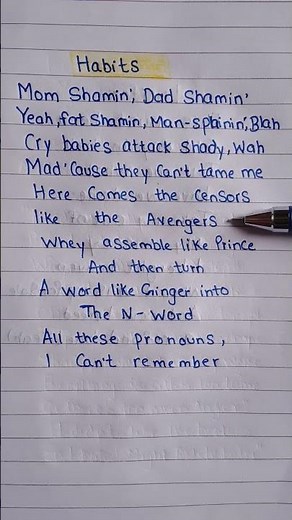 Habits
Mom Shamin', Dad Shamin'
Yeah, fat Shamin, Man-splainin', Blah
Cry babies attack Shady, Wah
Mad 'Cause they Can't tame me
Here Comes the Censors
like the Avengers
Whey assemble like Prince
And then turn
A word like Ginger into
The N-Word
All these pronouns,
I Can't remember